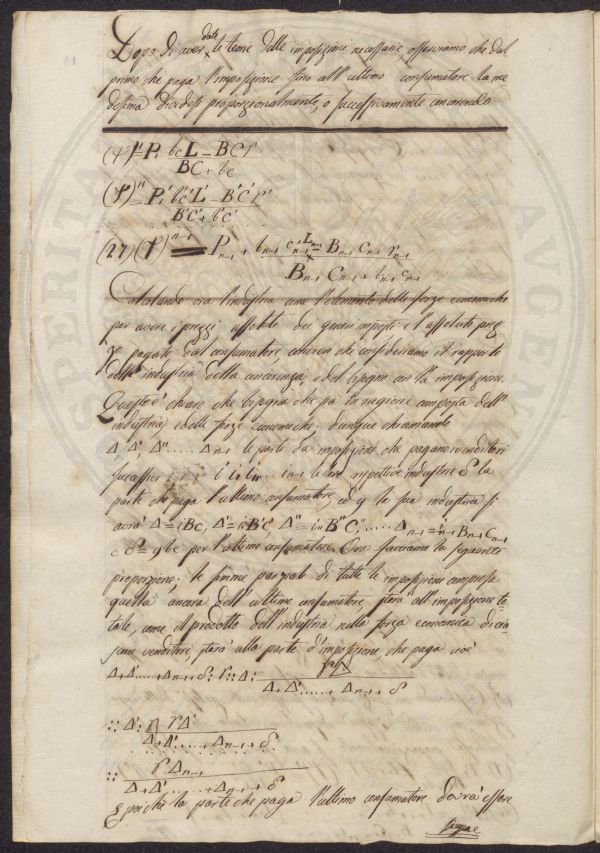 Dopo di aver date le teorie delle imposizioni necessarie, osserviamo che dal
primo che paga l'imposizione fino all'ultimo consumatore la me
desima dividesi proporzionalmente, o successivamente concorrendo
(Ψ)'= P, bcL – BCP
BC + bc
(Ψ)''= P,' b'c'L' – B'C'P'
B'C' + b'c'
(27) (Ψ)ⁿ⁻¹ = Pₙ₋₁ + bₙ₋₁ cₙ₋₁ Lₙ₋₁ – Bₙ₋₁ Cₙ₋₁ Pₙ₋₁
Bₙ₋₁ Cₙ₋₁ + bₙ₋₁ cₙ₋₁
Calcolando ora l'industria come l'elemento delle forze economiche
per avere i prezzi assoluti dei generi imposti e l'assoluto prez
zo pagato dal consumatore, conviene che consideriamo il rapporto
dell'industria della concorenza, e del bisogno con la imposizione.
Questo è chiaro che bisogna che sia in ragione composta dell'
industria, e delle forze economiche; dunque chiamando
Δ, Δ', Δ''..... Δₙ₋₁ le parti da imposizione che pagano i venditori
successivi i, i', i''... iₙ₋₁ le loro rispettive industrie δ la
parte che paga l'ultimo consumatore, ed y la sua industria si
avrà Δ = iBC, Δ' = i'B'C', Δ'' = i''B''C'',..... Δₙ₋₁ = iₙ₋₁ Bₙ₋₁ Cₙ₋₁
e δ = ybc per l'ultimo consumatore. Ora facciamo la seguente
proporzione; la somma parziale di tutte le imposizioni compresa
quella ancora dell'ultimo consumatore, starà all'imposizione to
tale, come il prodotto dell'industria nella forza economica di cia
scun venditore, starà alla parte d'imposizione, che paga cioè
Δ+Δ'.....+Δₙ₋₁+δ : P :: Δ : PΔ
Δ+Δ'.....+Δₙ₋₁+δ
:: Δ' : PΔ'
Δ+Δ'.....+Δₙ₋₁+δ
:: PΔₙ₋₁
Δ+Δ'.....+Δₙ₋₁+δ
E poichè la parte che paga l'ultimo consumatore dovrà essere